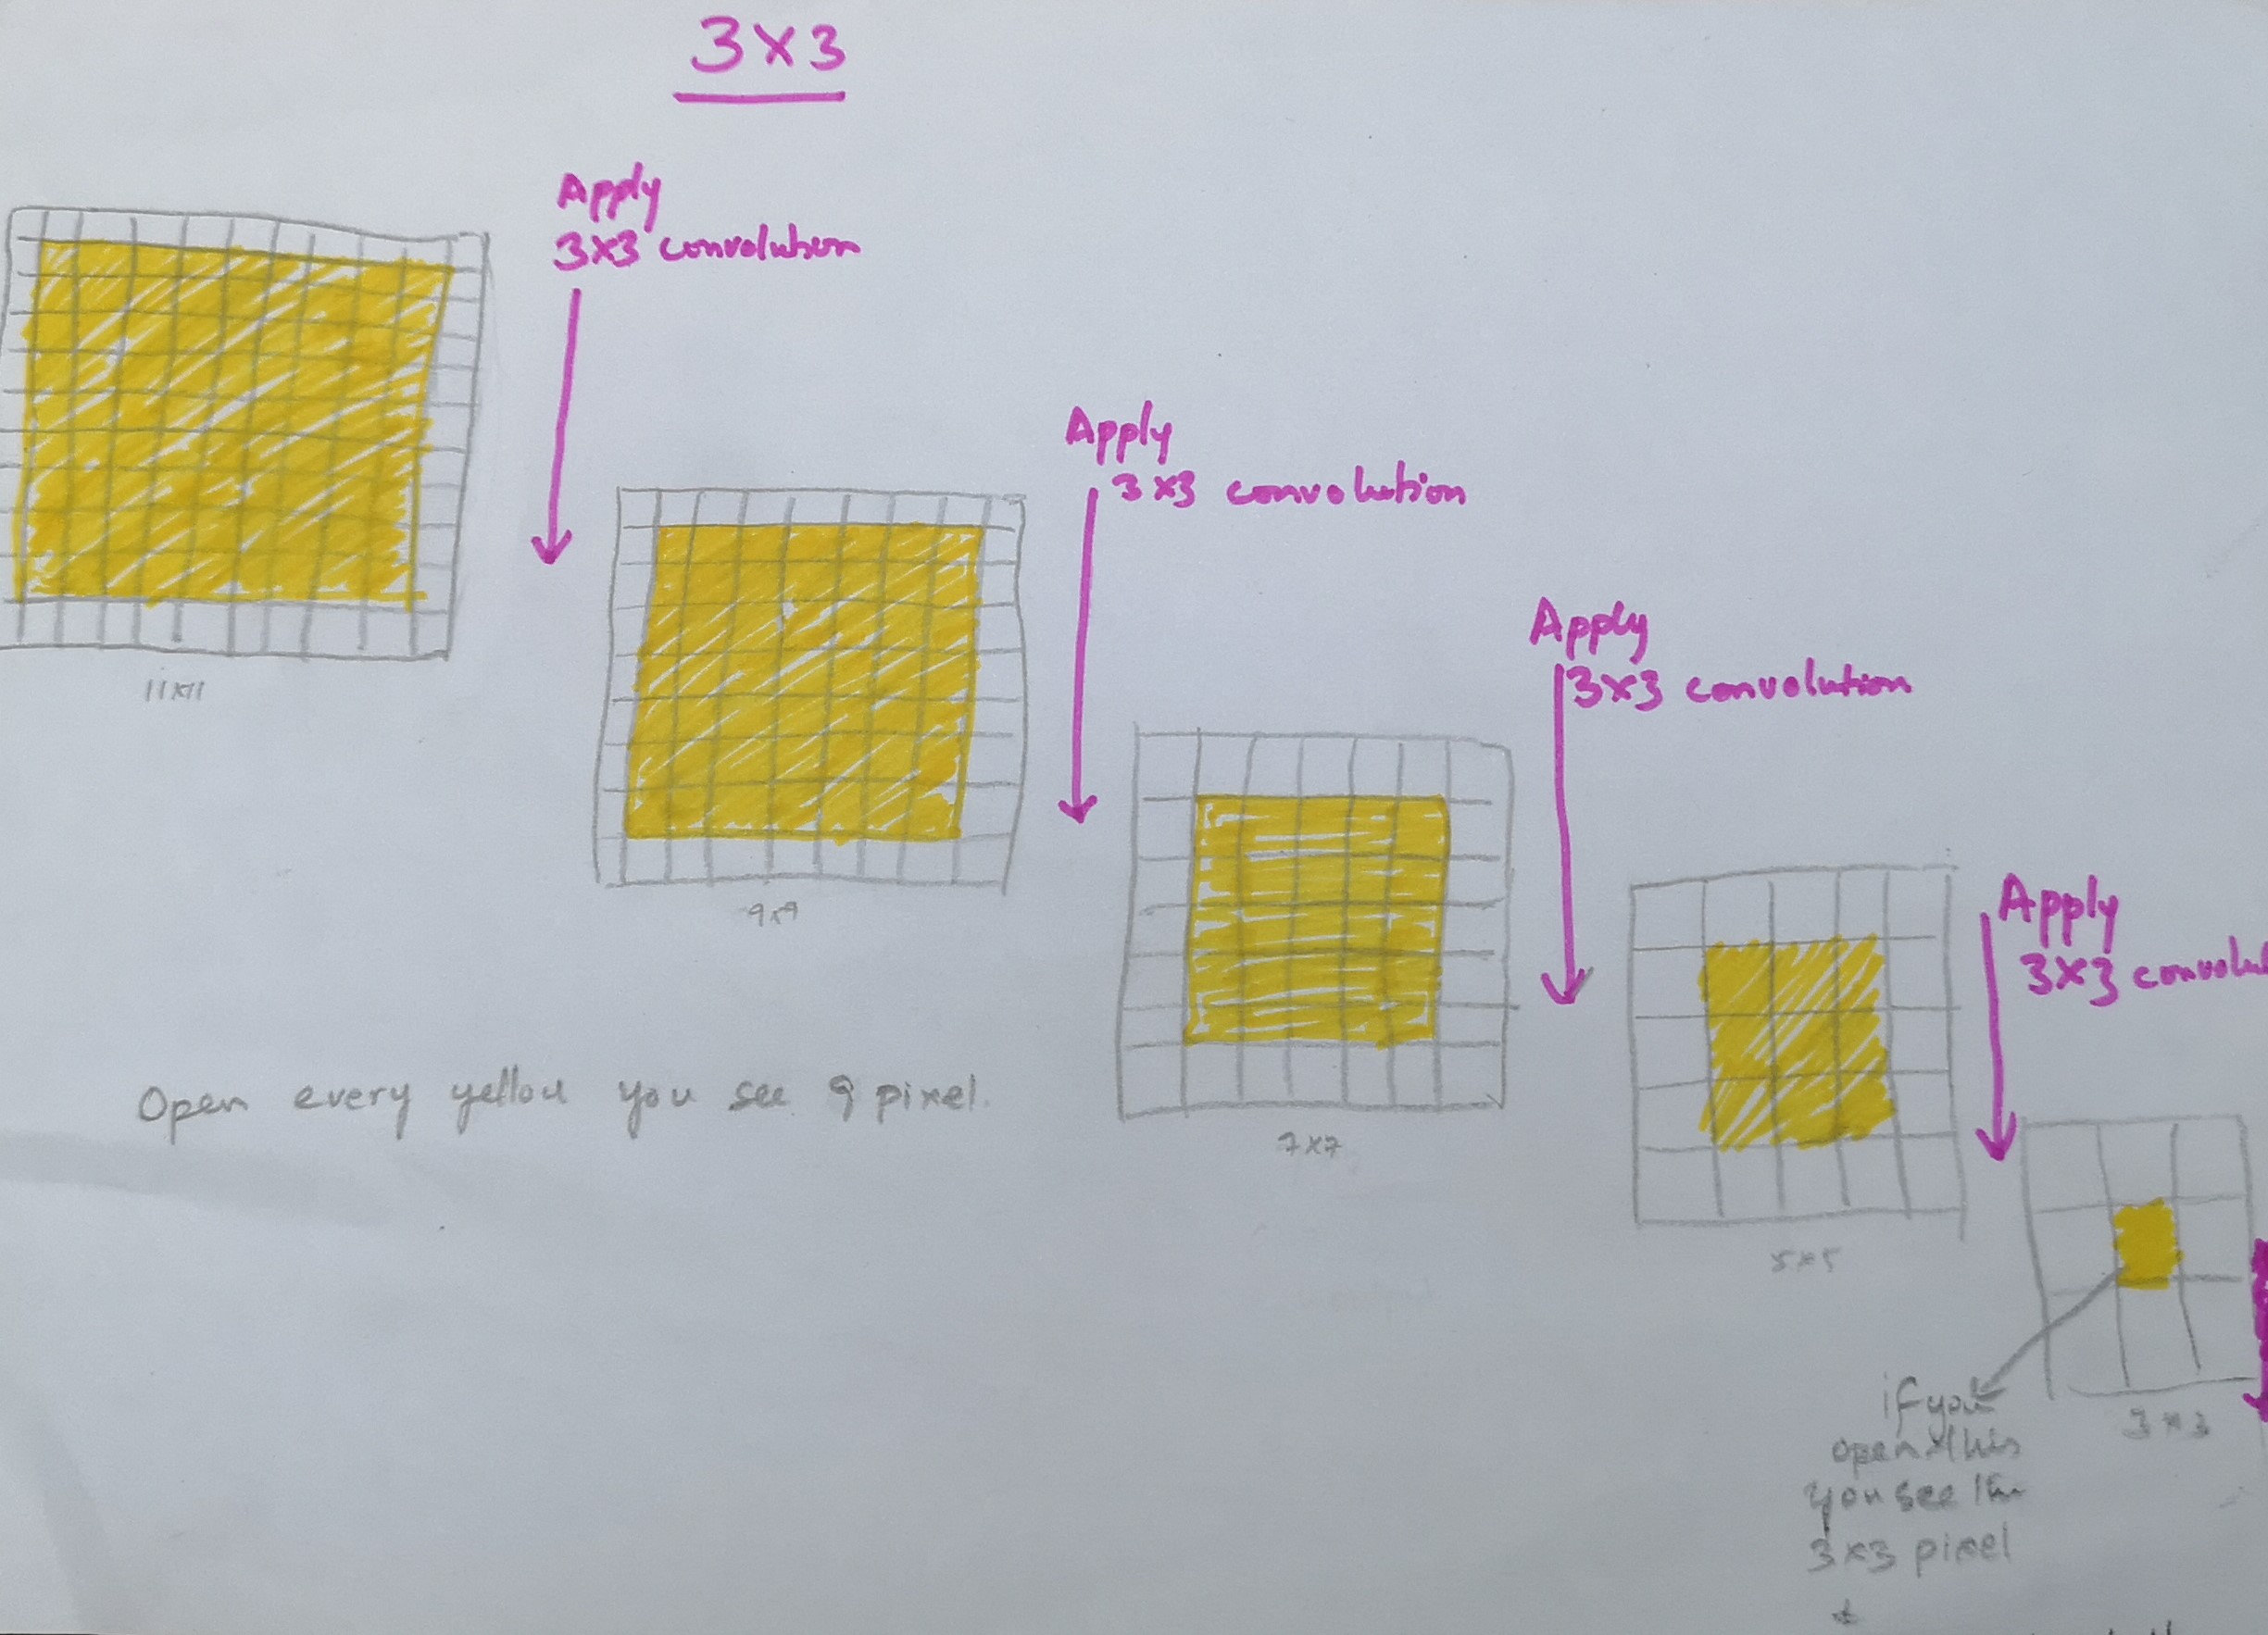 3x3
Apply
3x3 convolution
11x11
Apply
3x3 convolution
9x9
Apply
3x3 convolution
7x7
Apply
3x3 convolu
5x5
3x3
Open every yellow you see 9 pixel.
if you
open this
you see
3x3 pixel